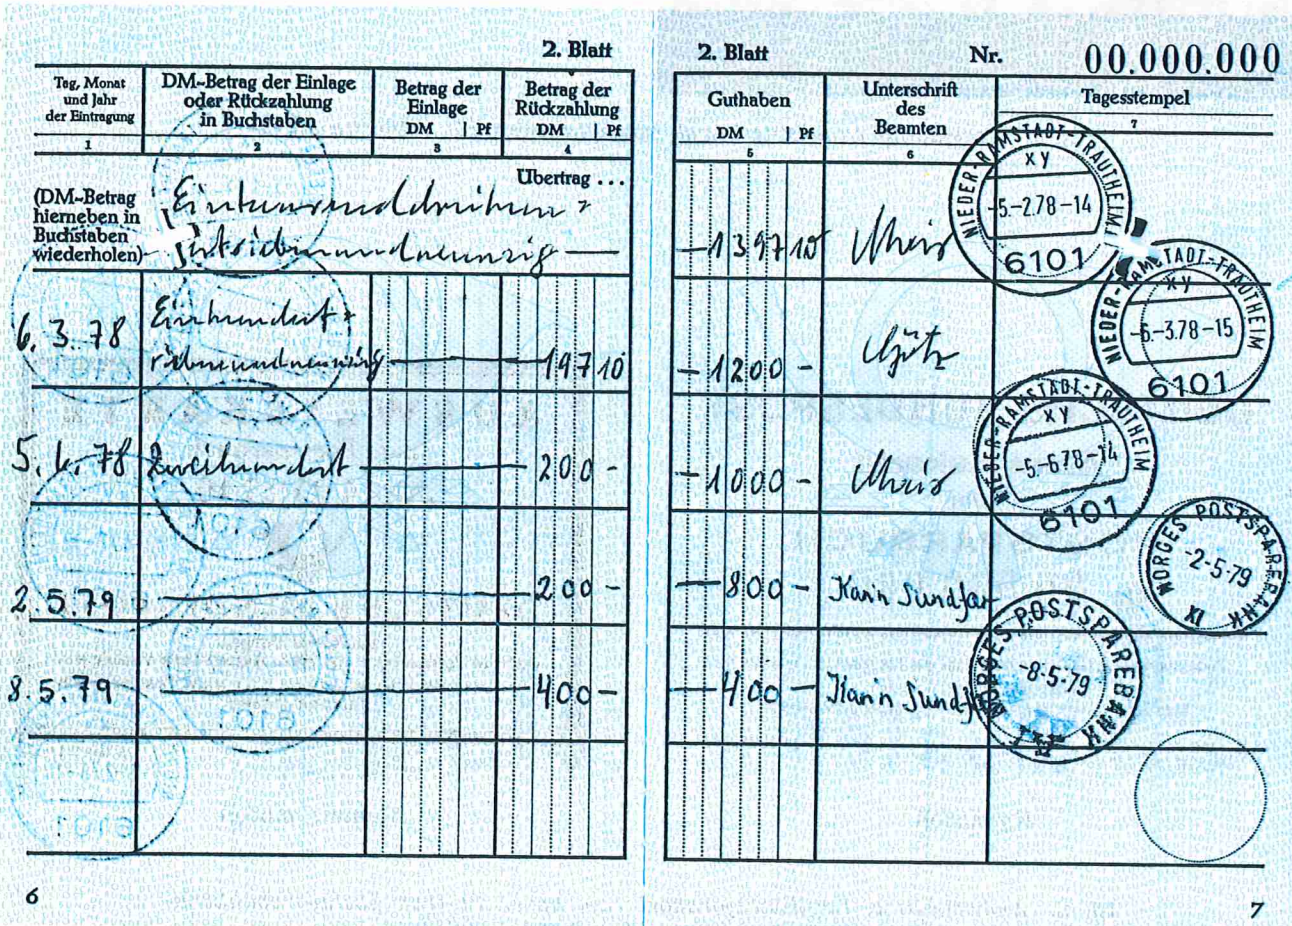 2. Blatt
Tag, Monat
und Jahr
der Eintragung
DM-Betrag der Einlage
oder Rückzahlung
in Buchstaben
Betrag der
Einlage
DM | Pf
Betrag der
Rückzahlung
DM | Pf
1 2 3 4
Übertrag ...
(DM-Betrag
hierneben in
Buchstaben
wiederholen)
Eintausenddreihundert-
siebenundneunzig —
6. 3. 78 Einhundert-
siebenundneunzig — 197 10
5. 6. 78 Zweihundert — 200 -
2.5.79 — 200 -
8.5.79 — 400 -
6
2. Blatt Nr. 00.000.000
Guthaben
DM | Pf
Unterschrift
des
Beamten
Tagesstempel
5 6 7
- 1397 10
NIEDER-RAMSTADT-TRAUTHEIM
xy
-5.-2.78-14
6101
- 1200 -
NIEDER-RAMSTADT-TRAUTHEIM
xy
-6.-3.78-15
6101
- 1000 -
NIEDER-RAMSTADT-TRAUTHEIM
xy
-5.-6.78-14
6101
- 800 - Karin Sundfar
NORGES POSTSPAREBANK
-2-5-79
IX
- 400 - Karin Sundf
NORGES POSTSPAREBANK
-8-5-79
7